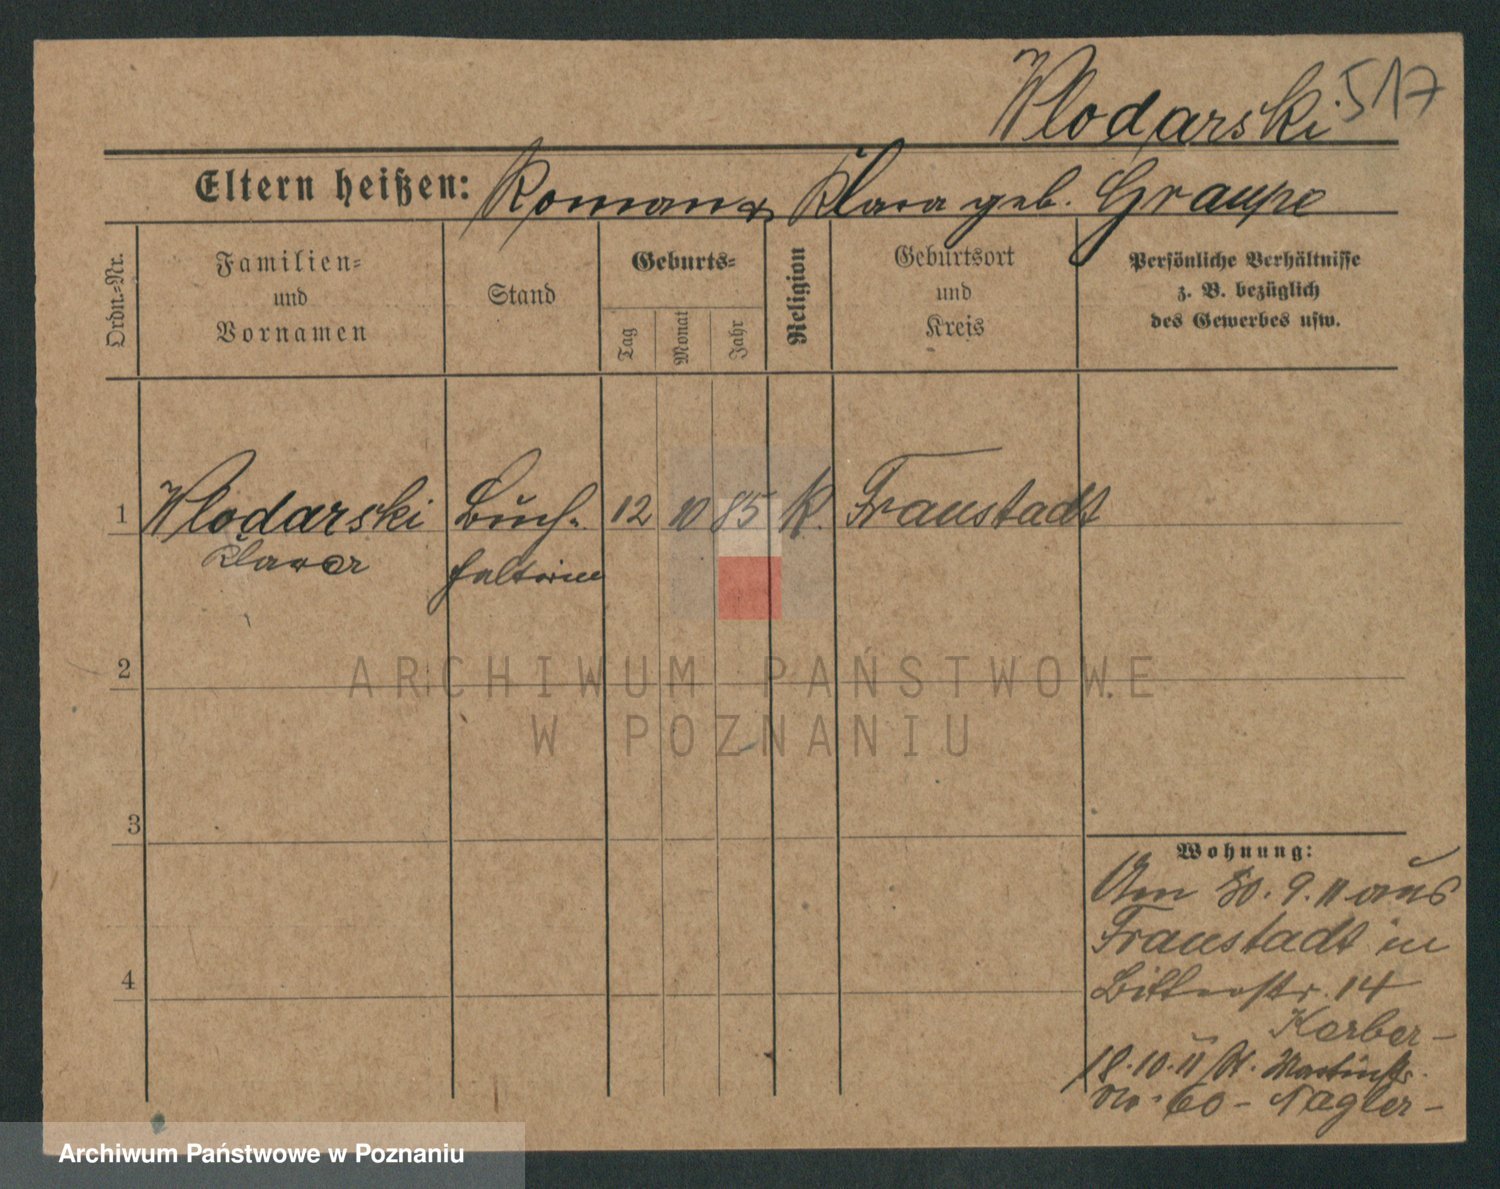 Wlodarski 517
Eltern heißen: Roman & Klara geb. Graupe
Ordn.-Nr.
Familien-
und
Vornamen
Stand
Geburts-
Tag
Monat
Jahr
Religion
Geburtsort
und
Kreis
Persönliche Verhältnisse
z. B. bezüglich
des Gewerbes usw.
1 Wlodarski Buch- 12 10 85 K. Fraustadt
Klara halterin
2
ARCHIWUM PAŃSTWOWE
W POZNANIU
3
Wohnung:
Am 30. 9. 11 aus
Fraustadt in
Ritterstr. 14
4
Korber-
18.10.11 St. Martinstr.
No. 60 - Nagler-
Archiwum Państwowe w Poznaniu